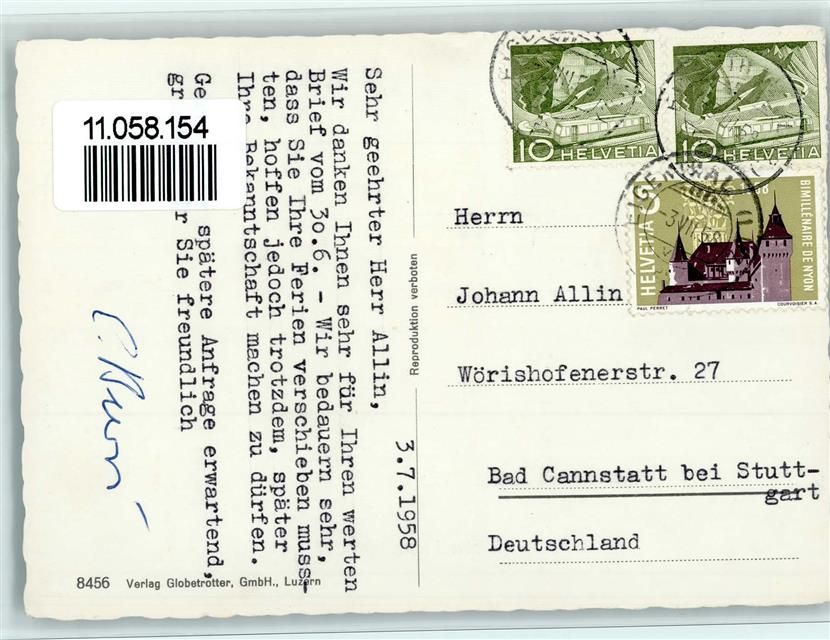 3.7.1958
Sehr geehrter Herr Allin,
Wir danken Ihnen sehr für Ihren werten
Brief vom 30.6. - Wir bedauern sehr,
dass Sie Ihre Ferien verschieben muss-
ten, hoffen jedoch trotzdem, später
Ihre Bekanntschaft machen zu dürfen.
spätere Anfrage erwartend,
Sie freundlich
11.058.154
Reproduktion verboten
8456 Verlag Globetrotter, GmbH., Luzern
10 HELVETIA
10 HELVETIA
HELVETIA 5
BIMILLÉNAIRE DE NYON
PAUL PERRET
COURVOISIER S.A.
Herrn
Johann Allin
Wörishofenerstr. 27
Bad Cannstatt bei Stutt-
gart
Deutschland